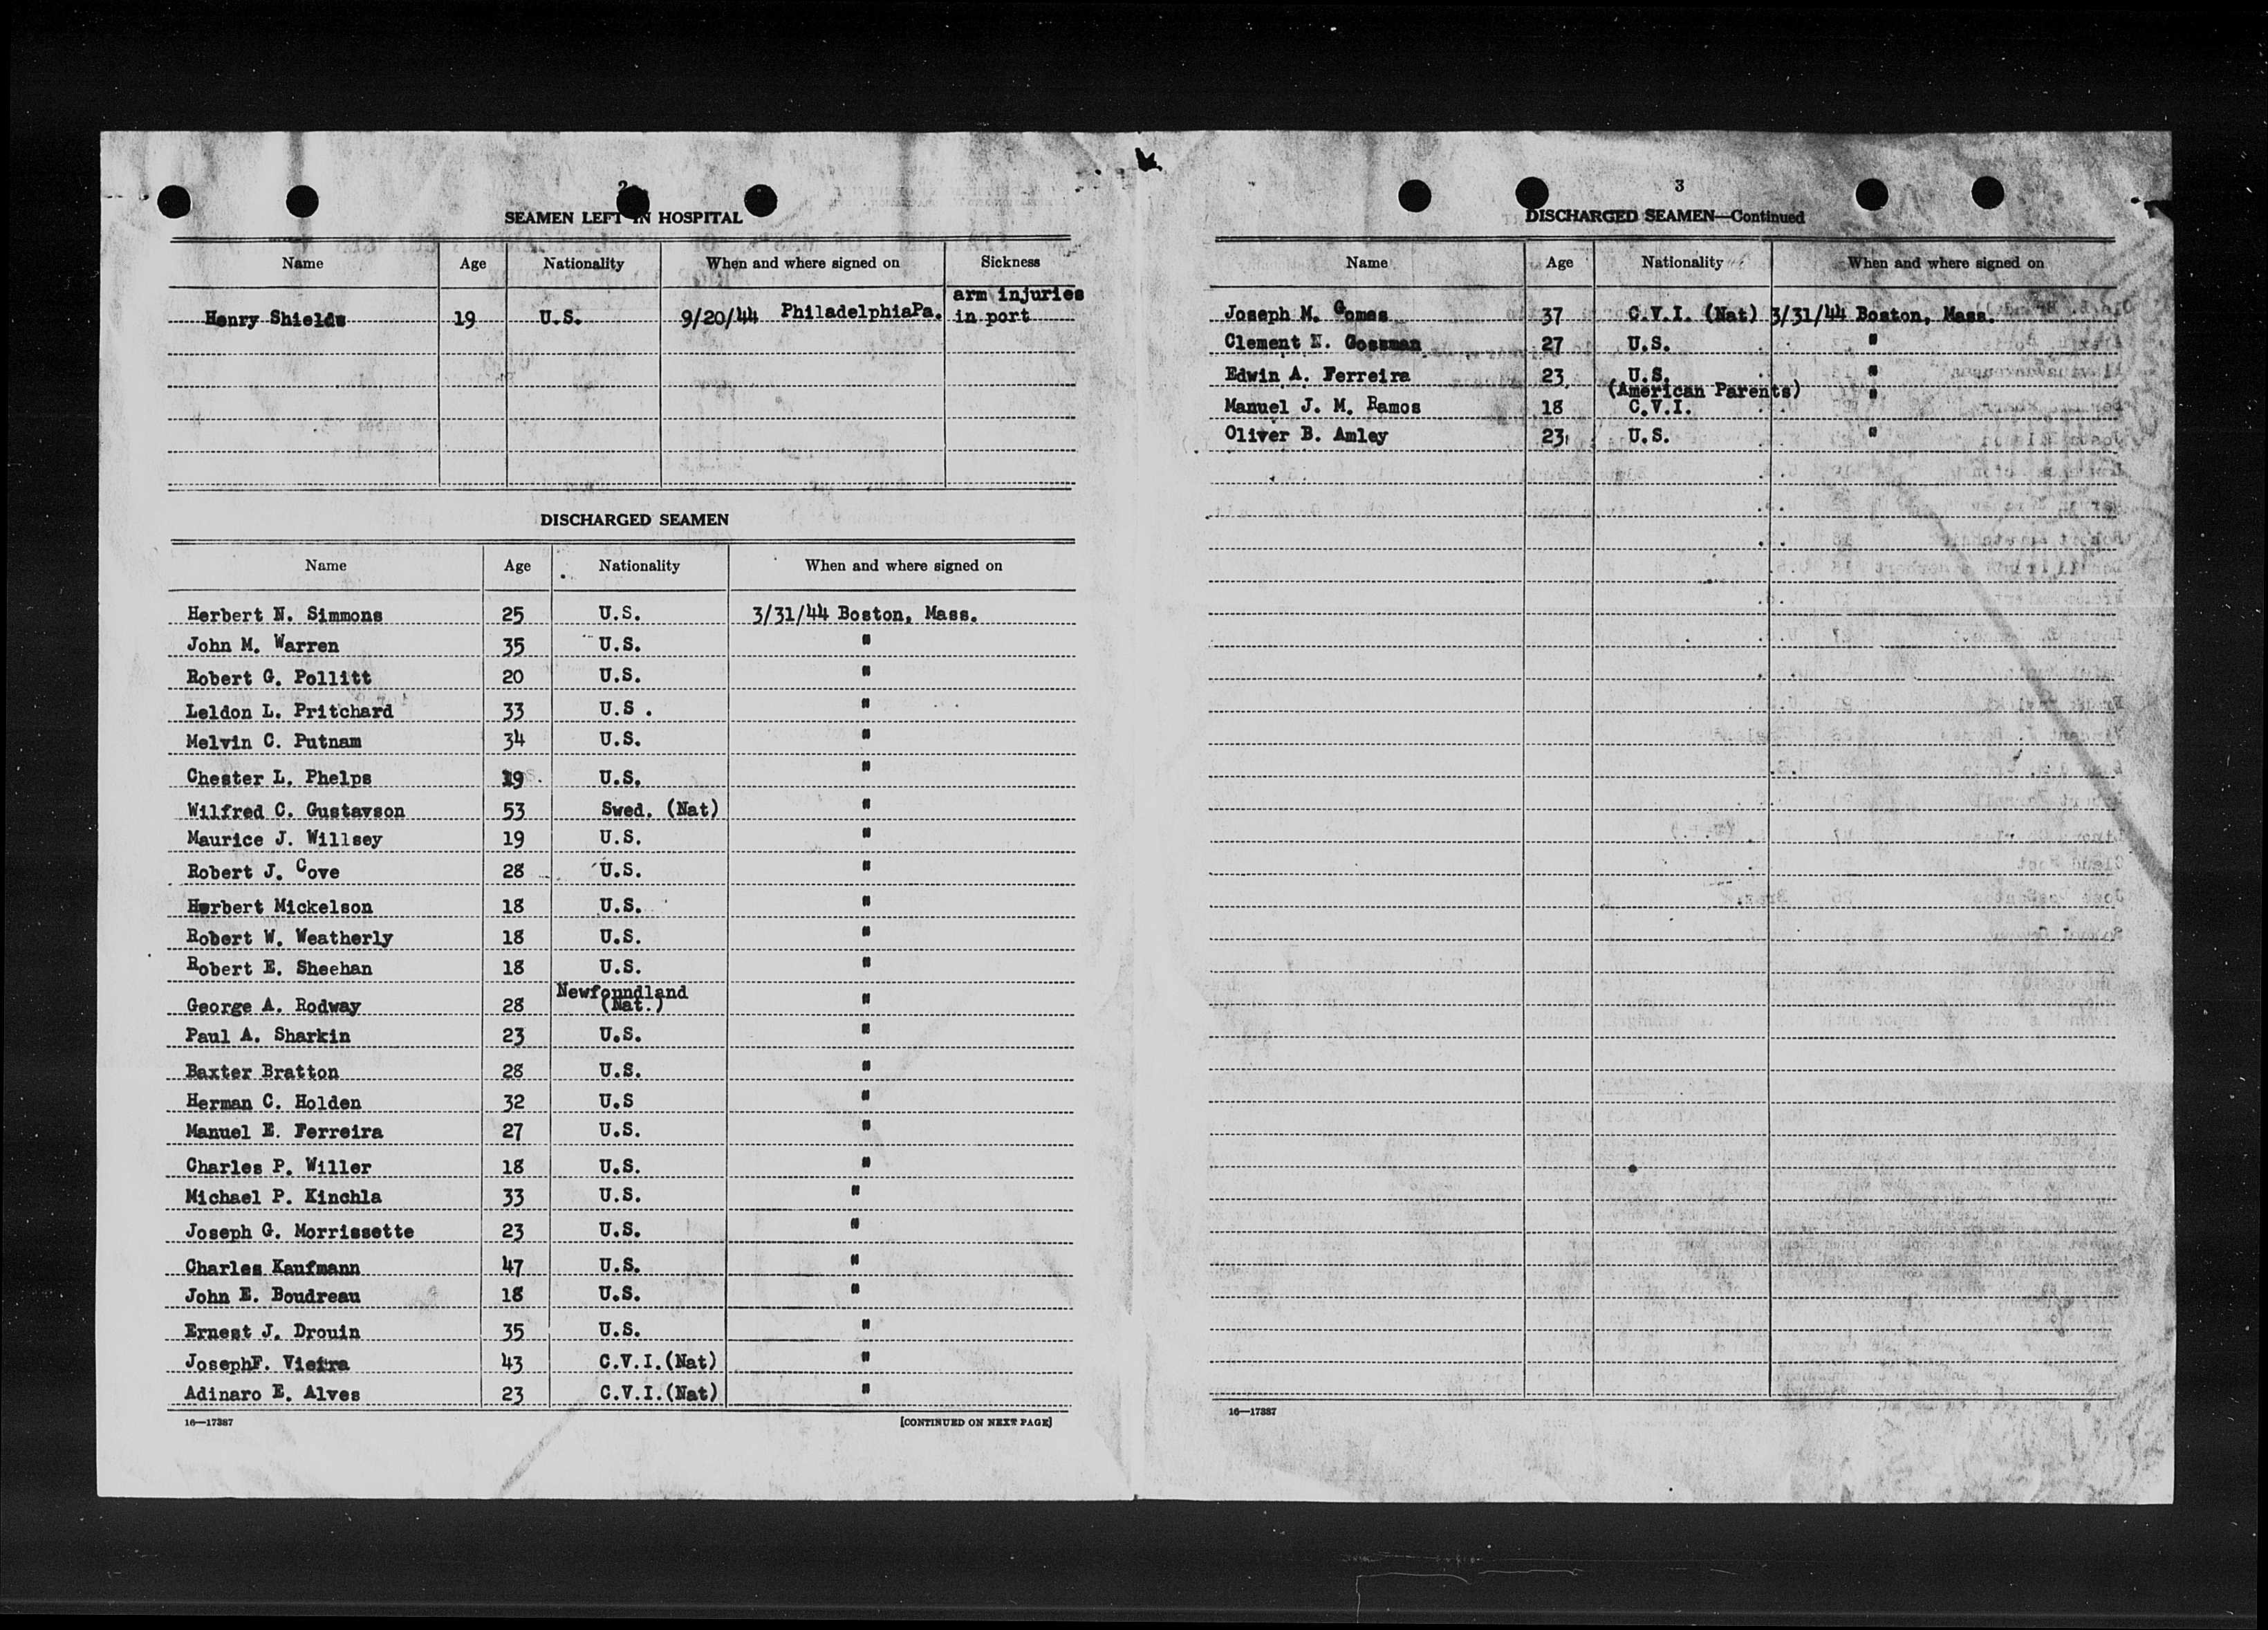 2
SEAMEN LEFT IN HOSPITAL
Name Age Nationality When and where signed on Sickness
Henry Shields 19 U.S. 9/20/44 PhiladelphiaPa. arm injuries in port
DISCHARGED SEAMEN
Name Age Nationality When and where signed on
Herbert N. Simmons 25 U.S. 3/31/44 Boston, Mass.
John M. Warren 35 U.S. "
Robert G. Pollitt 20 U.S. "
Leldon L. Pritchard 33 U.S . "
Melvin C. Putnam 34 U.S. "
Chester L. Phelps 19 U.S. "
Wilfred C. Gustavson 53 Swed. (Nat) "
Maurice J. Willsey 19 U.S. "
Robert J. Cove 28 U.S. "
Herbert Mickelson 18 U.S. "
Robert W. Weatherly 18 U.S. "
Robert E. Sheehan 18 U.S. "
George A. Rodway 28 Newfoundland (Nat.) "
Paul A. Sharkin 23 U.S. "
Baxter Bratton 28 U.S. "
Herman C. Holden 32 U.S "
Manuel E. Ferreira 27 U.S. "
Charles P. Willer 18 U.S. "
Michael P. Kinchla 33 U.S. "
Joseph G. Morrissette 23 U.S. "
Charles Kaufmann 47 U.S. "
John E. Boudreau 18 U.S. "
Ernest J. Drouin 35 U.S. "
JosephF. Vieira 43 C.V.I.(Nat) "
Adinaro E. Alves 23 C.V.I.(Nat) "
16—17387 [CONTINUED ON NEXT PAGE]
3
DISCHARGED SEAMEN—Continued
Name Age Nationality When and where signed on
Joseph M. Gomes 37 C.V.I. (Nat) 3/31/44 Boston, Mass.
Clement N. Gossman 27 U.S. "
Edwin A. Ferreira 23 U.S. "
(American Parents)
Manuel J. M. Ramos 18 C.V.I. "
Oliver B. Amley 23 U.S. "
16—17387